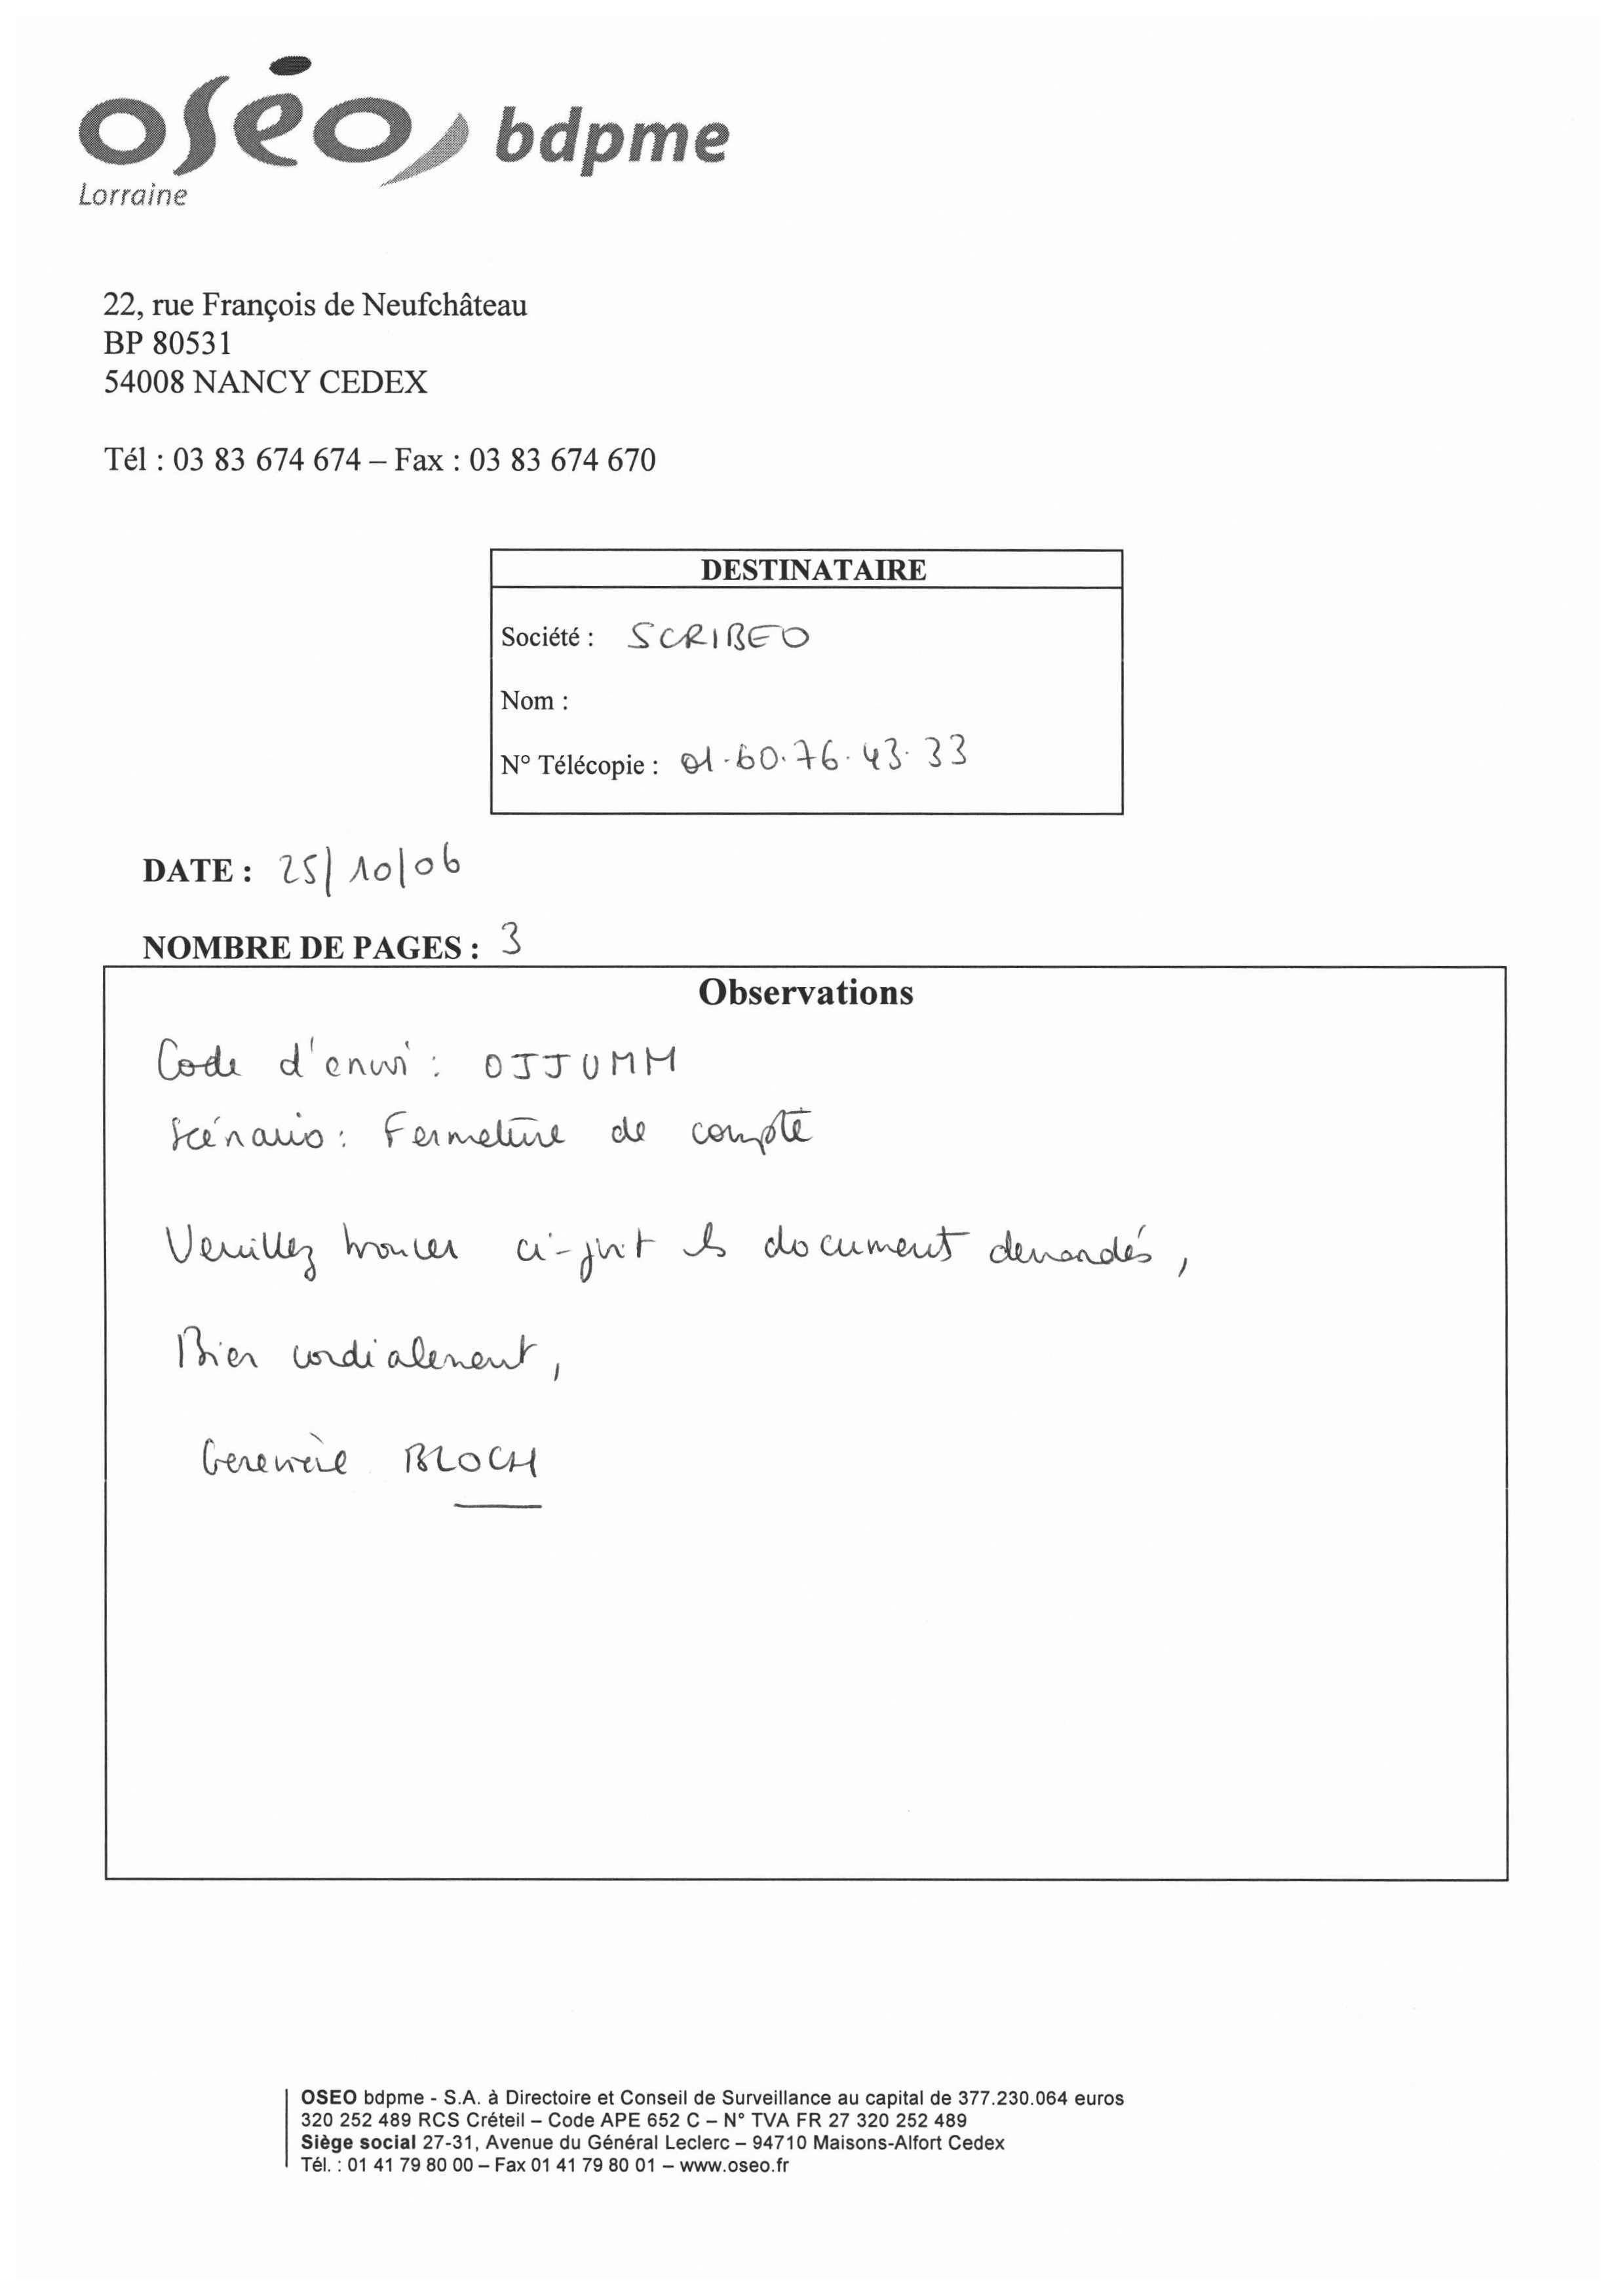 oséo bdpme
Lorraine
22, rue François de Neufchâteau
BP 80531
54008 NANCY CEDEX
Tél : 03 83 674 674 – Fax : 03 83 674 670
DESTINATAIRE
Société : SCRIBEO
Nom :
N° Télécopie : 01.60.76.43.33
DATE : 25/10/06
NOMBRE DE PAGES : 3
Observations
Code d'envoi : OJJUMM
Scénario : Fermeture de compte
Veuillez trouver ci-joint les document demandés,
Bien cordialement,
Geneviève BLOCH
OSEO bdpme - S.A. à Directoire et Conseil de Surveillance au capital de 377.230.064 euros
320 252 489 RCS Créteil – Code APE 652 C – N° TVA FR 27 320 252 489
Siège social 27-31, Avenue du Général Leclerc – 94710 Maisons-Alfort Cedex
Tél. : 01 41 79 80 00 – Fax 01 41 79 80 01 – www.oseo.fr